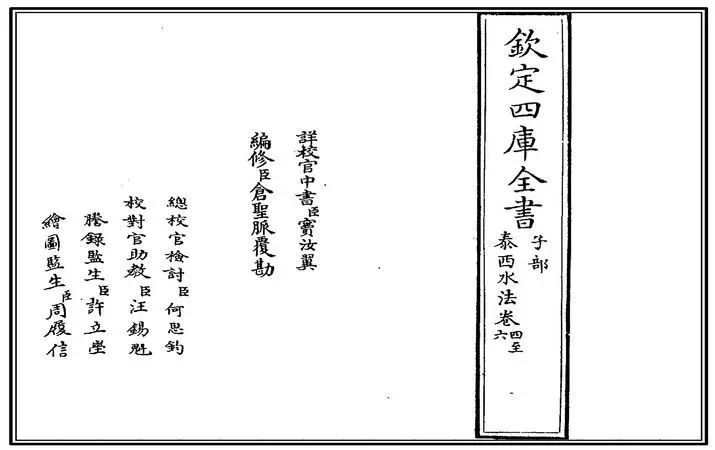 欽定四庫全書
子部
泰西水法卷四至六
詳校官中書臣竇汝翼
編修臣倉聖脈覆勘
總校官檢討臣何思鈞
校對官助教臣汪錫魁
謄錄監生臣許立坐
繪圖監生臣周履信